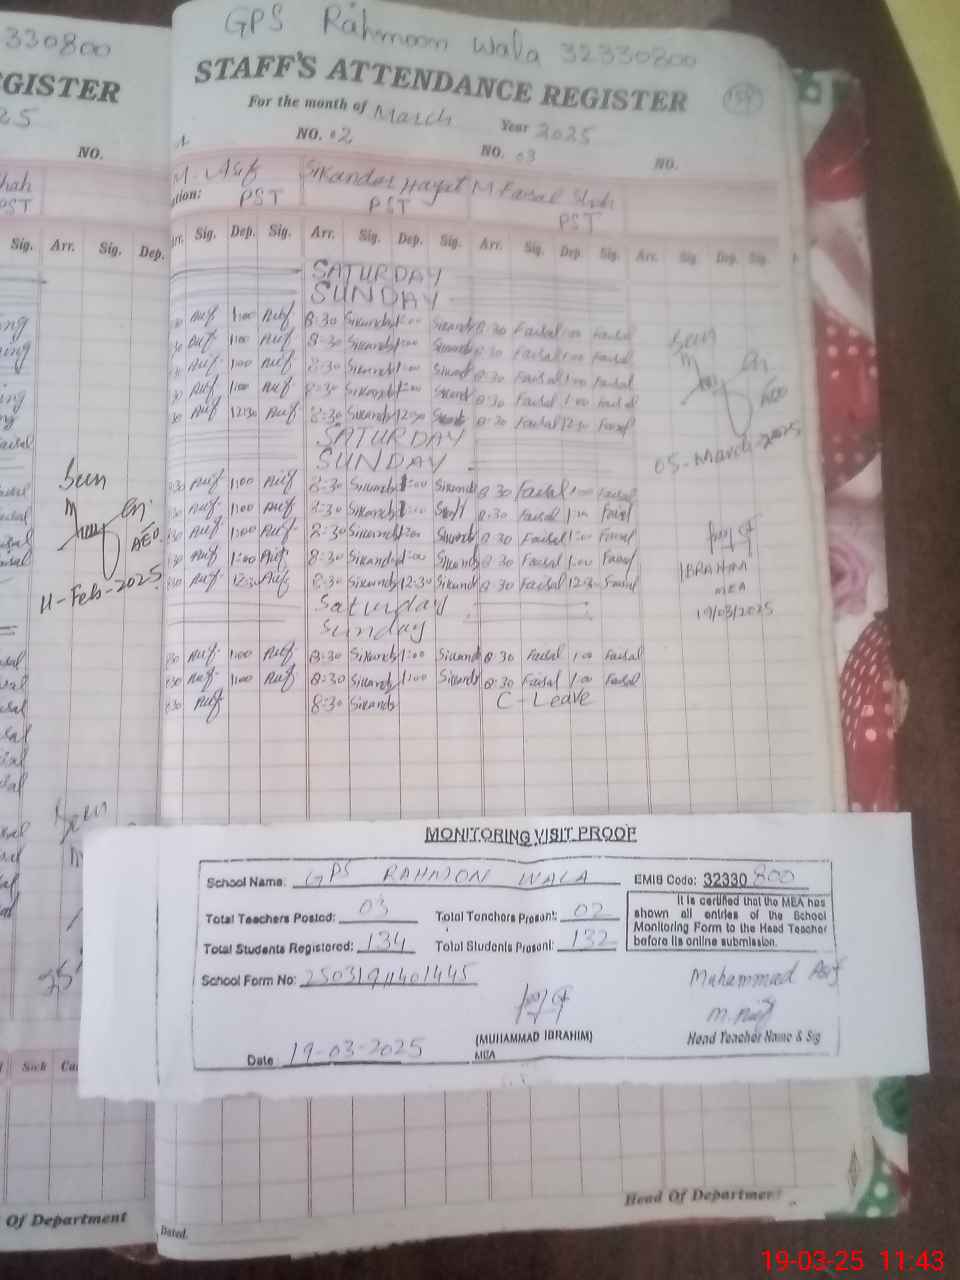 330800
GISTER
25
NO.
hah
PST
Sig. Arr. Sig. Dep.
Seen
AEO
11-Feb-2025
Seen
25
Sick
Of Department
GPS Rahmoon Wala 32330800
STAFF'S ATTENDANCE REGISTER
For the month of March Year 2025
NO. 02 NO. 03 NO.
M. Asif Sikandar Hayat M Faisal Shah
ation: PST PST PST
Arr. Sig. Dep. Sig. Arr. Sig. Dep. Sig. Arr. Sig. Dep. Sig. Arr. Sig. Dep. Sig.
SATURDAY
SUNDAY
:30 Asif 1:00 Asif 8:30 Sikandar 1:00 Sikandar 8:30 Faisal 1:00 Faisal
:30 Asif 1:00 Asif 8:30 Sikandar 1:00 Sikandar 8:30 Faisal 1:00 Faisal
:30 Asif 1:00 Asif 8:30 Sikandar 1:00 Sikandar 8:30 Faisal 1:00 Faisal
:30 Asif 1:00 Asif 8:30 Sikandar 1:00 Sikandar 8:30 Faisal 1:00 Faisal
:30 Asif 12:30 Asif 8:30 Sikandar 12:30 Sikandar 8:30 Faisal 12:30 Faisal
SATURDAY
SUNDAY
:30 Asif 1:00 Asif 8:30 Sikandar 1:00 Sikandar 8:30 Faisal 1:00 Faisal
:30 Asif 1:00 Asif 8:30 Sikandar 1:00 8:30 Faisal 1:00 Faisal
:30 Asif 1:00 Asif 8:30 Sikandar 1:00 Sikandar 8:30 Faisal 1:00 Faisal
:30 Asif 1:00 Asif 8:30 Sikandar 1:00 Sikandar 8:30 Faisal 1:00 Faisal
:30 Asif 12:30 Asif 8:30 Sikandar 12:30 Sikandar 8:30 Faisal 12:30 Faisal
Saturday
Sunday
:30 Asif 1:00 Asif 8:30 Sikandar 1:00 Sikandar 8:30 Faisal 1:00 Faisal
:30 Asif 1:00 Asif 8:30 Sikandar 1:00 Sikandar 8:30 Faisal 1:00 Faisal
:30 Asif 8:30 Sikandar C-Leave
Seen
AEO
05-March-2025
IBRAHIM
MEA
19/03/2025
MONITORING VISIT PROOF
School Name: GPS RAHMON WALA EMIS Code: 32330800
Total Teachers Posted: 03 Total Teachers Present: 02
Total Students Registered: 134 Total Students Present: 132
It is certified that the MEA has
shown all entries of the School
Monitoring Form to the Head Teacher
before its online submission.
School Form No: 25031911401445
Muhammad Asif
M. Asif
(MUHAMMAD IBRAHIM)
MEA
Head Teacher Name & Sig
Date 19-03-2025
Head Of Department
Dated.
19-03-25 11:43